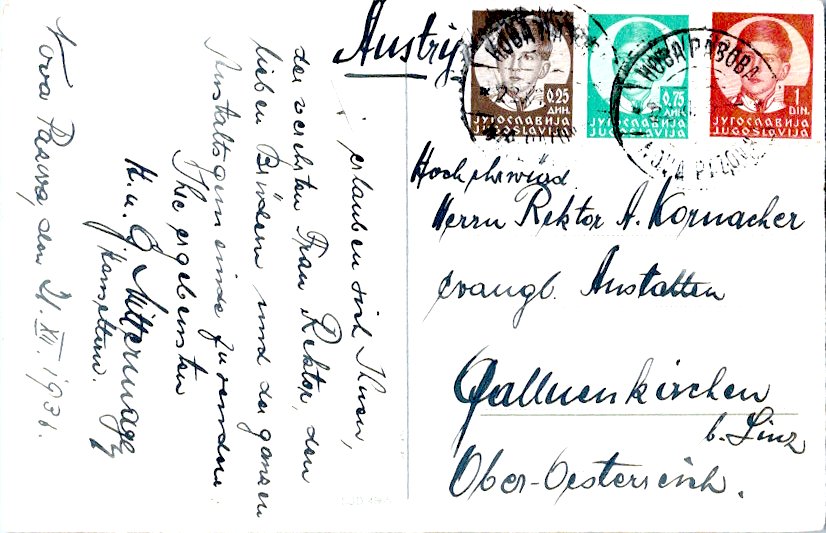 erlauben sich Ihnen,
der verehrten Frau Rektor, den
lieben Brüdern und der ganzen
Anstaltsgemeinde zu senden
Ihre ergebensten
H. u. J.
Nova Pazova, den 21. XII.
0.25
ДИН.
ЈУГОСЛАВИЈА
JUGOSLAVIJA
0.75
ДИН.
ЈУГОСЛАВИЈА
JUGOSLAVIJA
1
DIN.
ЈУГОСЛАВИЈА
JUGOSLAVIJA
НОВА ПАЗОВА
НОВА ПАЗОВА
NOVA PAZOVA
Hochehrwürd
Herrn Rektor A. Kornacher
evangl. Anstalten
Gallneukirchen
b. Linz
Ober-Oesterreich.